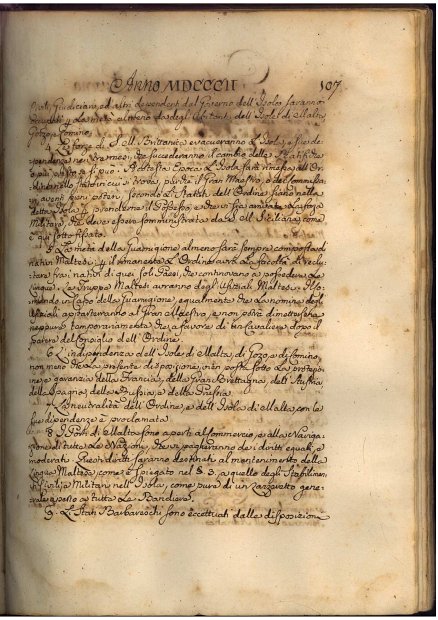 Anno MDCCCII 107
Posti Giudiciari, ed altri dependenti dal Governo dell'Isola saranno
occupati p. la metà almeno da degli Abitanti dell'Isole di Malta
Gozo, e Comino.
4. Le forze di S. M. Brittanica evacueranno l'Isola, e sue de-
pendenze nei tre mesi, che succederanno il cambio delle Ratifiche
e più presto se si può. A codesta Epoca l'Isola sarà rimessa all'Or-
dine nello stato in cui si trova, purchè il Gran Maestro, o dei Commissa-
ri aventi pieni poteri secondo li Statuti dell'Ordine siano nella
detta Isola p. prenderne il Possesso, e che vi sia arrivata la forza
Militare, che deve essere somministrata da S. M. Siciliana come
è qui sotto fissato.
5. La metà della Guarnigione almeno sarà sempre composta di
nativi Maltesi; p. il rimanente l'Ordine avrà la facoltà di reclu-
tare tra i nativi di quei soli Paesi, che continovano a possedere le
Lingue. Le Truppe Maltesi avranno degli Ufiziali Maltesi; il Co-
mando in Capo della Guarnigione, egualmente che la nomina degli
Ufiziali apparterranno al Gran Maestro, e non potrà dimettersene
neppure temporaneamente che a favore di un Cavaliere dopo il
parere del Consiglio dell'Ordine.
6. L'indipendenza dell'Isole di Malta, di Gozo, e di Comino,
non meno che la presente disposizione, vien posta sotto la protezio-
ne, e garanzia della Francia, della Gran Brettagna, dell'Austria,
della Spagna, della Russia, e della Prussia.
7. La neutralità dell'Ordine, e dell'Isola di Malta, con le
sue dipendenze è proclamata.
8. I Porti di Malta sono aperti al Commercio, e alla Naviga-
zione di tutte le Nazioni, che vi pagheranno dei diritti eguali, e
moderati. Questi diritti saranno destinati al mantenimento della
Lingua Maltese, come è spiegato nel §. 3. a quello degli Stabilimen-
ti Civili, e Militari nell'Isola, come pure di un Lazzaretto gene-
rale aperto a tutte le Bandiere.
9. Li Stati Barbareschi sono eccettuati dalle disposizioni